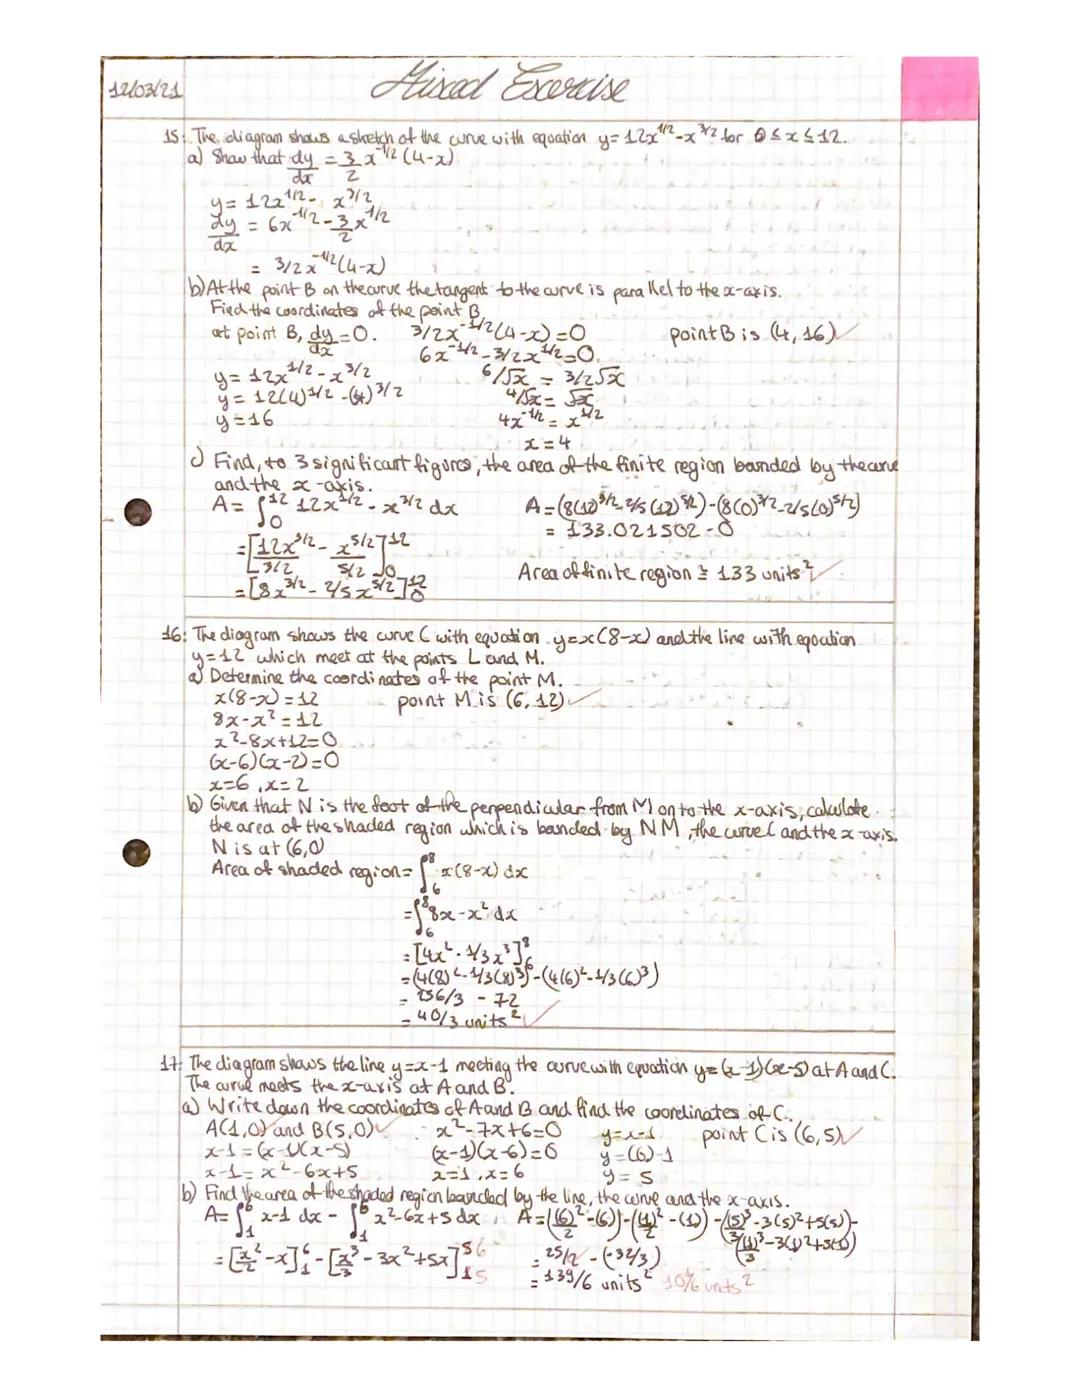 12/03/21
Mixed Exercise
15: The diagram shows a sketch of the curve with equation y = 12x^1/2 - x^3/2 for 0 ≤ x ≤ 12.
a) Show that dy/dx = 3/2 x^-1/2 (4-x)
y = 12x^1/2 - x^3/2
dy/dx = 6x^-1/2 - 3/2 x^1/2
= 3/2 x^-1/2 (4-x)
b) At the point B on the curve the tangent to the curve is parallel to the x-axis.
Find the coordinates of the point B.
at point B, dy/dx = 0. 3/2x^-1/2(4-x) = 0 point B is (4, 16) ✓
6x^-1/2 - 3/2x^1/2 = 0.
y = 12x^1/2 - x^3/2 6/√x = 3/2√x
y = 12(4)^1/2 - (4)^3/2 4/√x = √x
y = 16 4x^-1/2 = x^1/2
x = 4
c) Find, to 3 significant figures, the area of the finite region bounded by the curve
and the x-axis.
A = ∫₀¹² 12x^1/2 - x^3/2 dx A = (8(12)^3/2 - 2/5(12)^5/2) - (8(0)^3/2 - 2/5(0)^5/2)
= [12x^3/2 / 3/2 - x^5/2 / 5/2]₀¹² = 133.021502 - 0
= [8x^3/2 - 2/5x^5/2]₀¹² Area of finite region ≅ 133 units² ✓
16: The diagram shows the curve C with equation y = x(8-x) and the line with equation
y = 12 which meet at the points L and M.
a) Determine the coordinates of the point M.
x(8-x) = 12 point M is (6, 12) ✓
8x - x² = 12
x² - 8x + 12 = 0
(x-6)(x-2) = 0
x = 6, x = 2
b) Given that N is the foot of the perpendicular from M on to the x-axis, calculate
the area of the shaded region which is bounded by NM, the curve C and the x-axis.
N is at (6,0)
Area of shaded region = ∫₆⁸ x(8-x) dx
= ∫₆⁸ 8x - x² dx
= [4x² - 1/3x³]₆⁸
= (4(8)² - 1/3(8)³) - (4(6)² - 1/3(6)³)
= 256/3 - 72
= 40/3 units² ✓
17: The diagram shows the line y = x-1 meeting the curve with equation y = (x-1)(x-5) at A and C.
The curve meets the x-axis at A and B.
a) Write down the coordinates of A and B and find the coordinates of C.
A(1,0) and B(5,0) ✓ x² - 7x + 6 = 0 y = x-1 point C is (6,5) ✓
x-1 = (x-1)(x-5) (x-1)(x-6) = 0 y = (6)-1
x-1 = x² - 6x + 5 x = 1, x = 6 y = 5
b) Find the area of the shaded region bounded by the line, the curve and the x-axis.
A = ∫₁⁶ x-1 dx - ∫₁⁶ x² - 6x + 5 dx A = ((6)²/2 - (6)) - ((1)²/2 - (1)) - ((5)³/3 - 3(5)² + 5(5)) -
((1)³/3 - 3(1)² + 5(1))
= [x²/2 - x]₁⁶ - [x³/3 - 3x² + 5x]₁⁵ 6 5 = 25/2 - (-32/3)
= 139/6 units² 10 1/6 units²